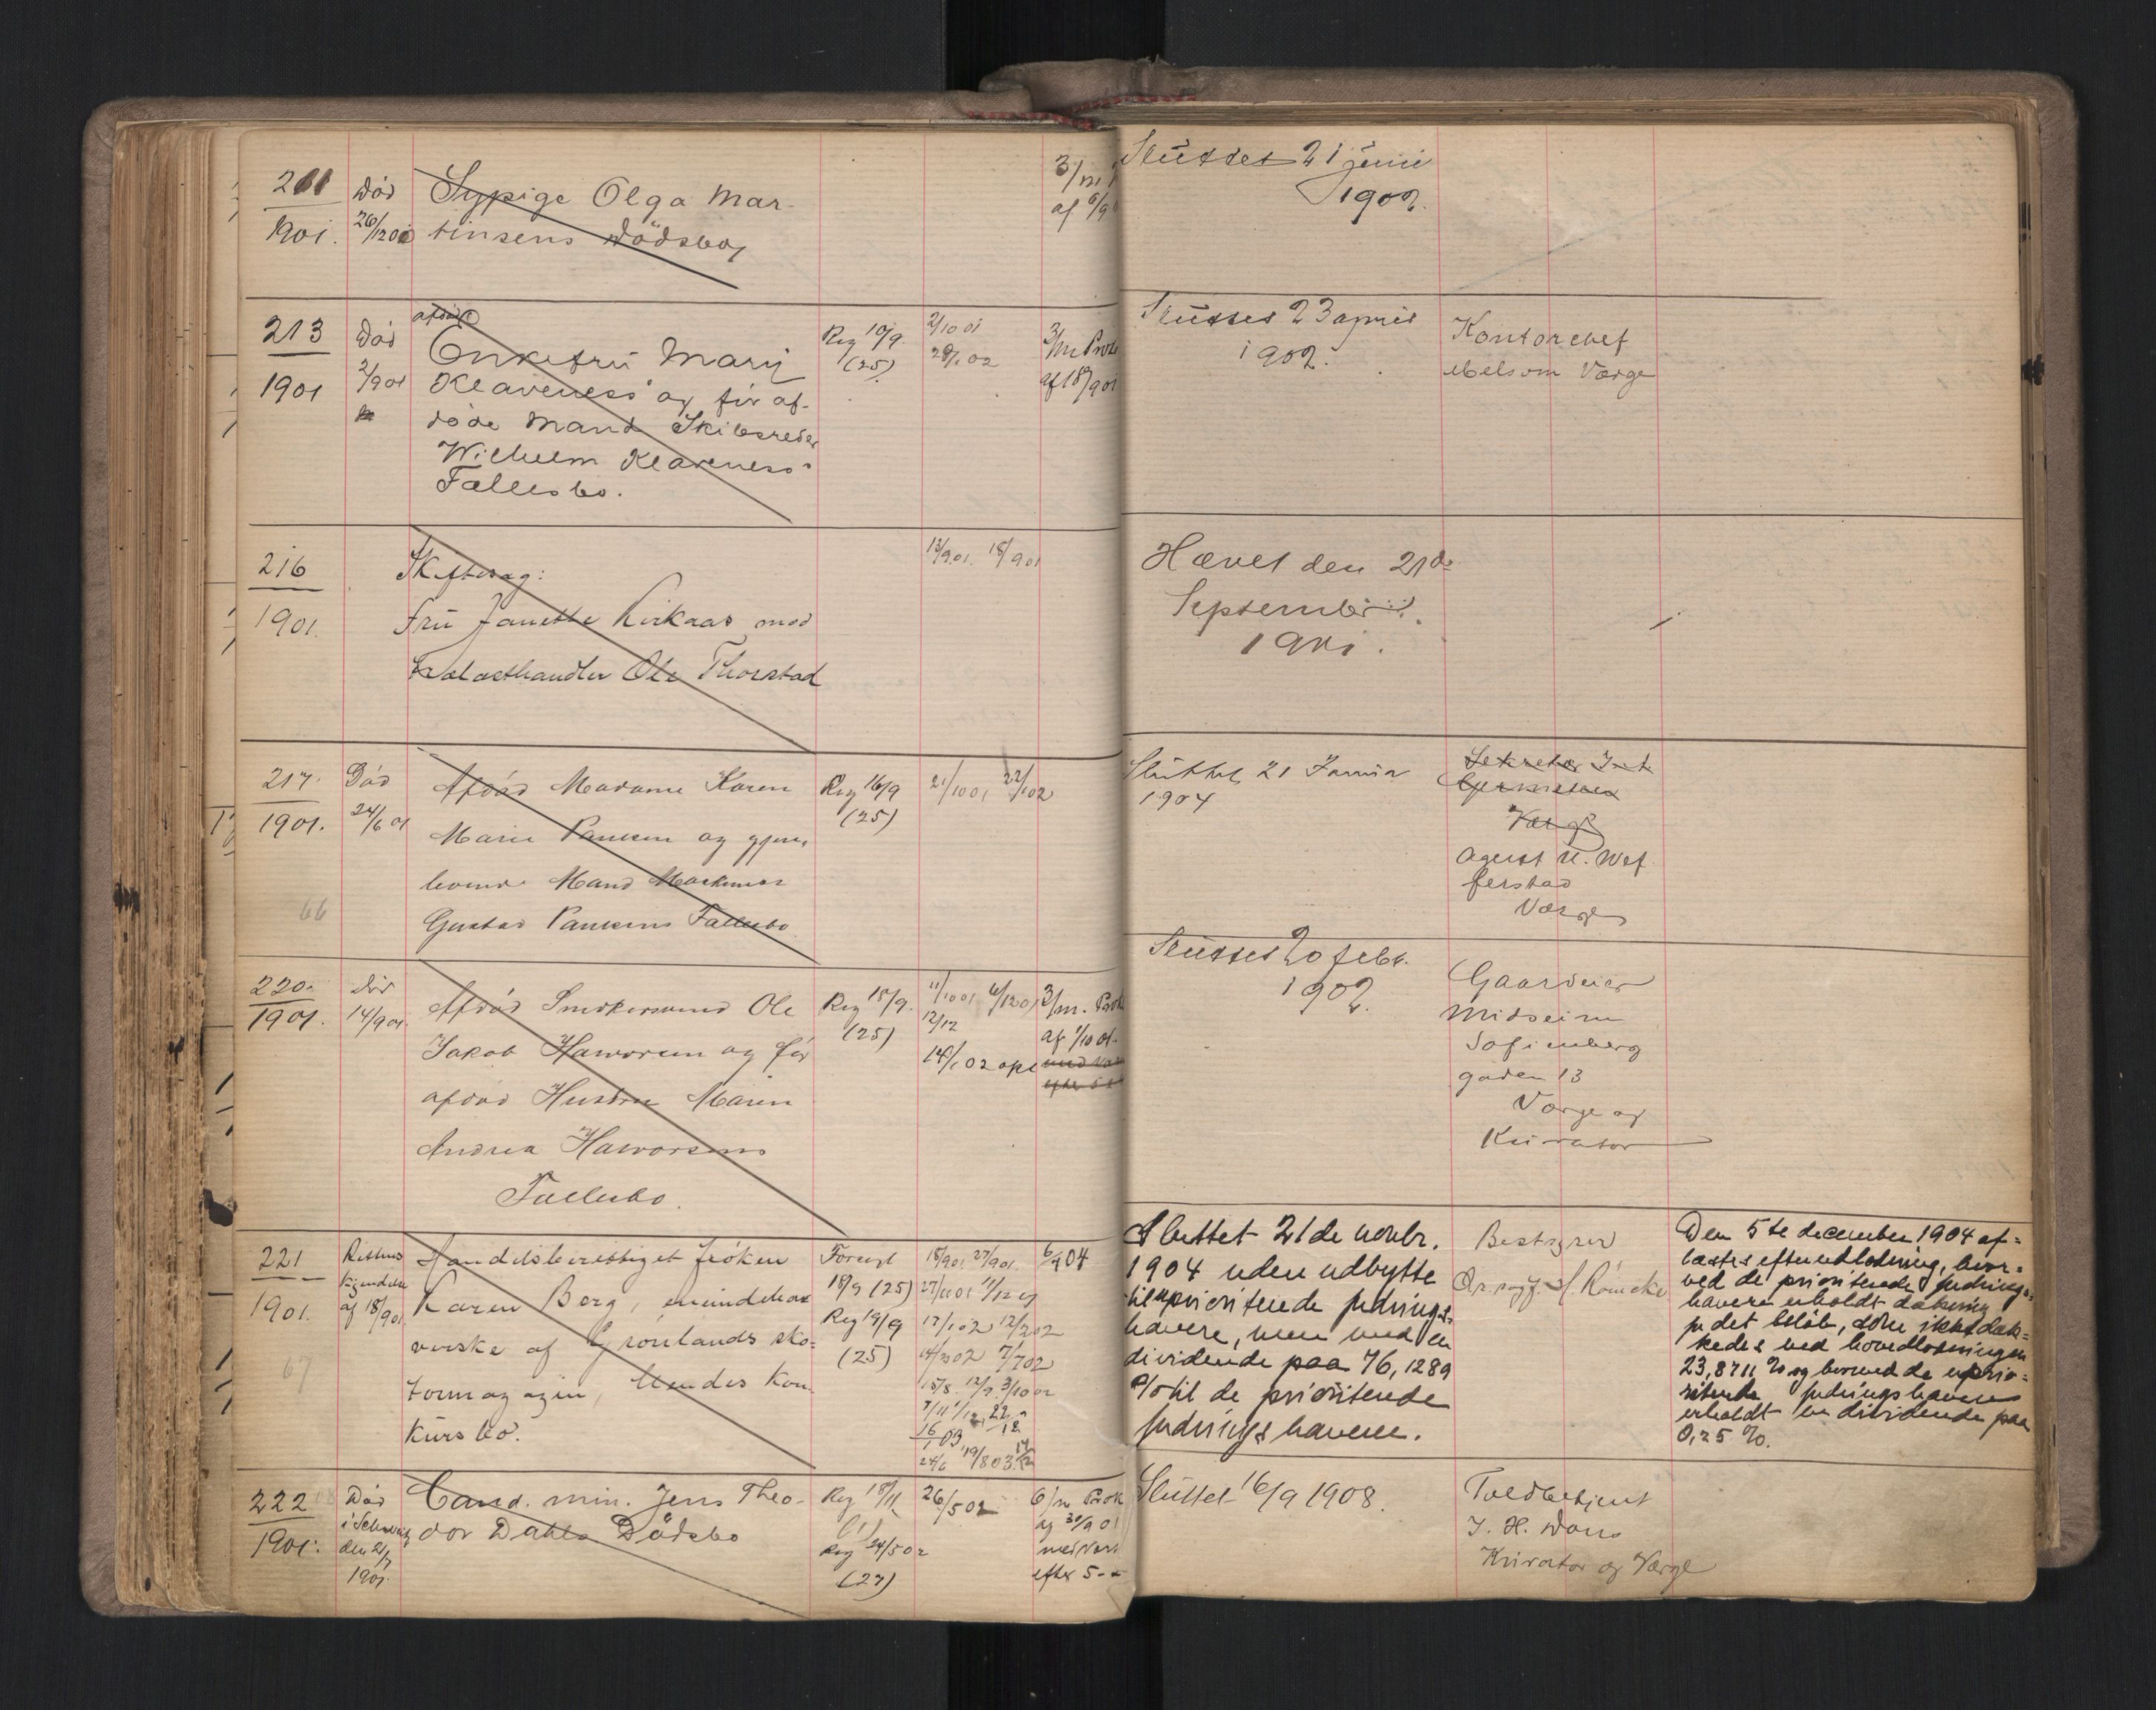 211
1901.
Død
26/1201
Sypige Olga Mar-
tinsens Dødsbo
3/m
af 6/9
Sluttet 21 juni
1902.
213
1901
Død
2/901
afdøde
Enkefru Mary
Klaveness' og før af-
døde Mand Skibsreder
Wilhelm Klaveness'
Fællesbo.
Reg 10/9.
(25)
2/10 01
28/1 02
3/m Prok
af 18/9 01
Sluttet 23 april
1902.
Kontorchef
Melsom Værge
216
1901.
Skiftesag:
Fru Janette Kirkaas mod
Trælasthandler Ole Thorstad
13/9.01. 18/9 01
Hævet den 21de
September
1901.
217.
1901.
66
Død
24/6 01
Afdød Madame Karen
Marie Paulsen og gjen-
levende Mand Maskinist
Gustav Paulsens Fællesbo
Reg 16/9
(25)
21/10 01 22/1 02
Sluttet 21 Januar
1904
Sekretær
Værge
Agent N. Wef
ferstad
Værge
220.
1901.
Død
14/9 01
Afdød Smedkersvend Ole
Jakob Hawersen og før
afdød Hustru Maren
Andrea Hawersens
Fællesbo.
Reg 18/9.
(25)
11/10 01 6/12 01
12/12
18/1 02
3/m. Prok
af 1/10 01.
Sluttet 20 febr.
1902.
Gaardeier
Midseim
Sofienberg
gaden 13
Værge og
Kurator
221
1901.
67
Rettens
Kjendelse
af 18/9 01
Handelsberettiget Frøken
Karen Berg, eneindehav
erske af Grønlands sko-
tøimagazin, hendes Kon-
kursbo.
Foreg
18/9 (25)
Reg 19/9
(25)
18/9 01, 27/9 01.
27/11 01 11/12 01
17/1 02 12/2 02
14/3 02 7/7 02
15/8. 12/9. 3/10 02
16/1 03
24/6 19/8 03.
6/9 04
Sluttet 21de novbr.
1904 uden udbytte
til upriviterede fordrings-
havere, men med en
dividende paa 76,1289
% til de prioriterede
fordringshavere.
Bestyrer
Or. sagf. H. Römcke
Den 5te december 1904 af-
lastes efterudlodning, hvor-
ved de prioriterede fordrings-
havere erholdt dækning
for det beløb, som ikke dæk-
kedes ved hovedlodningen
23,8711 % og hvorved de uprio-
riterede fordringshavere
erholdt en dividende paa
0,25 %.
222
1901.
Død
den 21/7
1901.
Cand. min. Jens Theo-
dor Dahls Dødsbo
Reg 18/11
Reg 24/5 02
(27)
26/5 02
6/m Prok
af 30/9 01
med Vars
efter 5--
Sluttet 16/9 1908.
Toldbetjent
J. H. Dons
Kurator og Værge